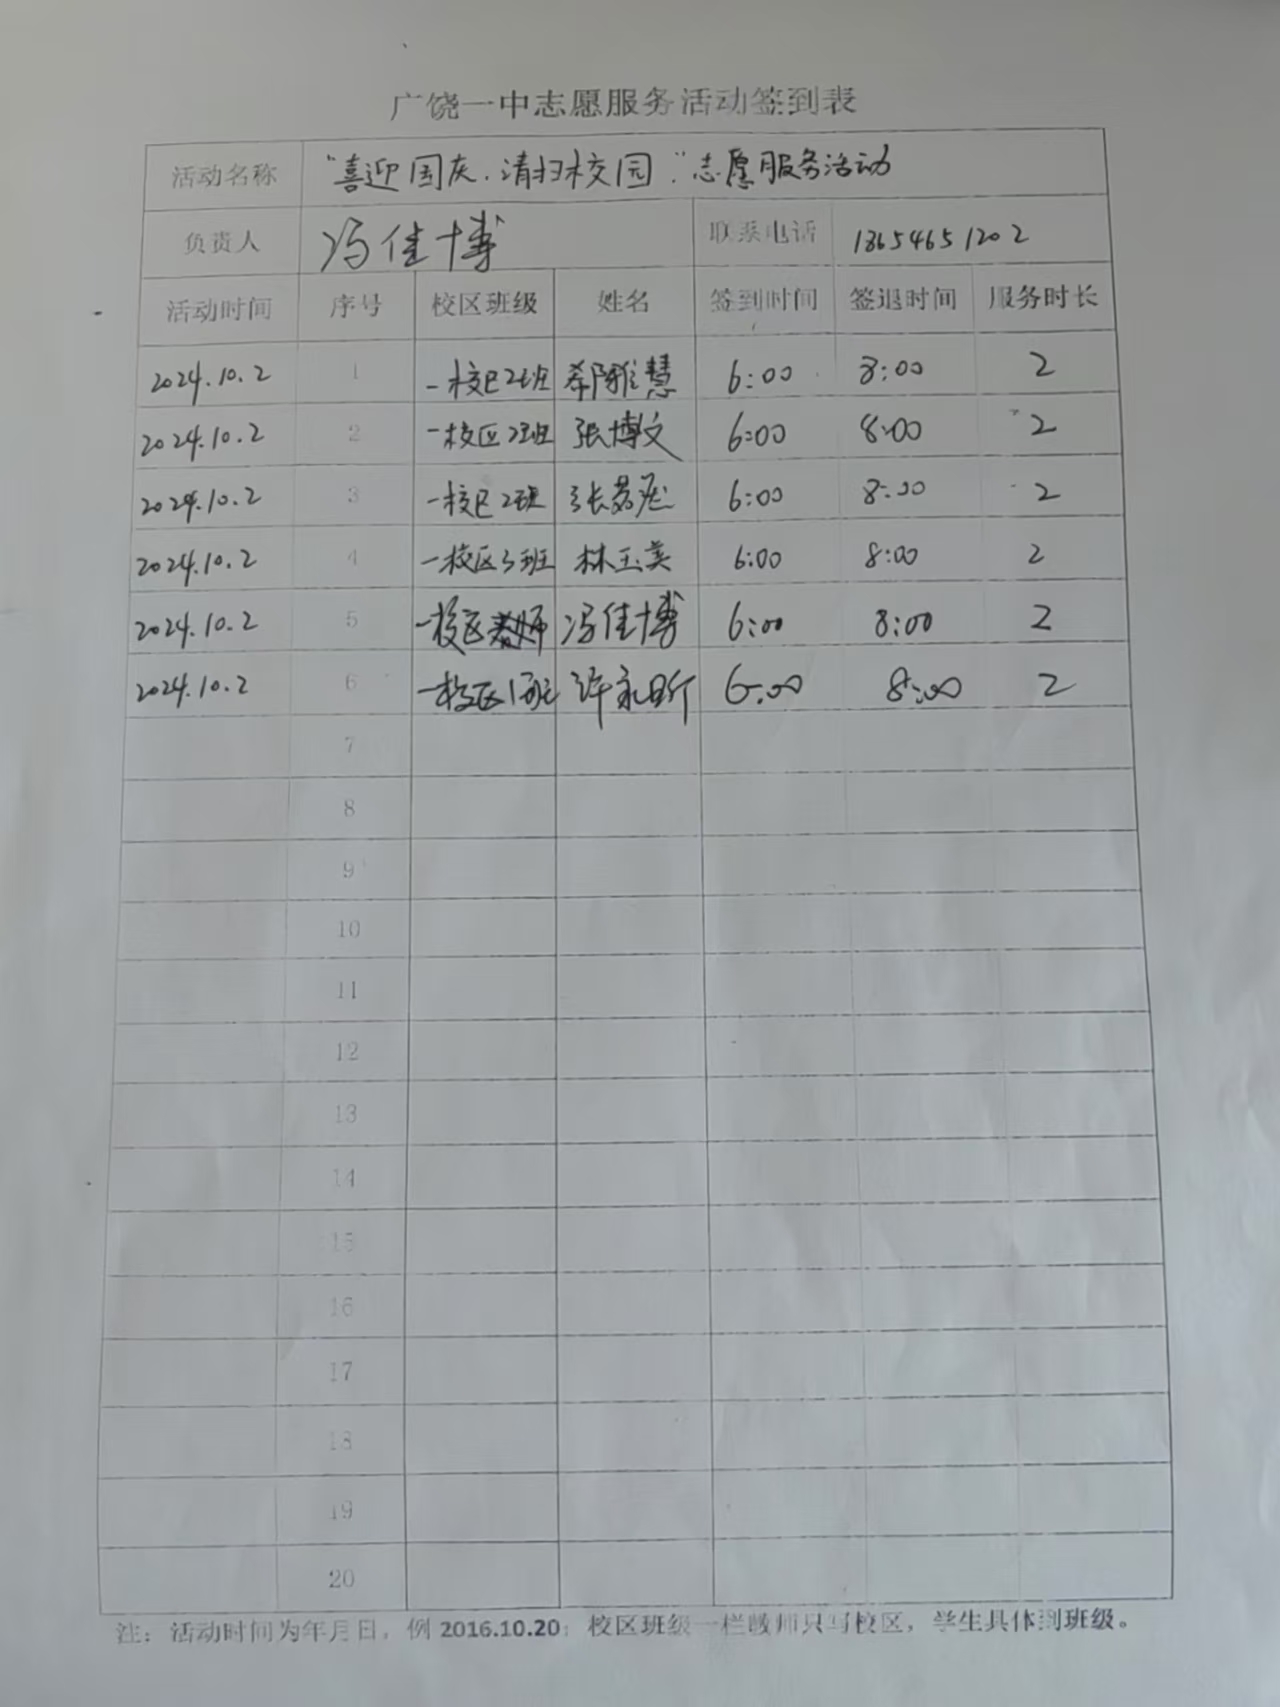 广饶一中志愿服务活动签到表
活动名称 "喜迎国庆.清扫校园."志愿服务活动
负责人 冯佳博 联系电话 18654651202
活动时间 序号 校区班级 姓名 签到时间 签退时间 服务时长
2024.10.2 1 一校区2班 雅慧 6:00 8:00 2
2024.10.2 2 一校区2班 张博文 6:00 8:00 2
2024.10.2 3 一校区2班 张 6:00 8:00 2
2024.10.2 4 一校区3班 林玉英 6:00 8:00 2
2024.10.2 5 一校区教师 冯佳博 6:00 8:00 2
2024.10.2 6 一校区1班 许永昕 6:00 8:00 2
7
8
9
10
11
12
13
14
15
16
17
18
19
20
注：活动时间为年月日，例 2016.10.20；校区班级一栏教师只写校区，学生具体到班级。